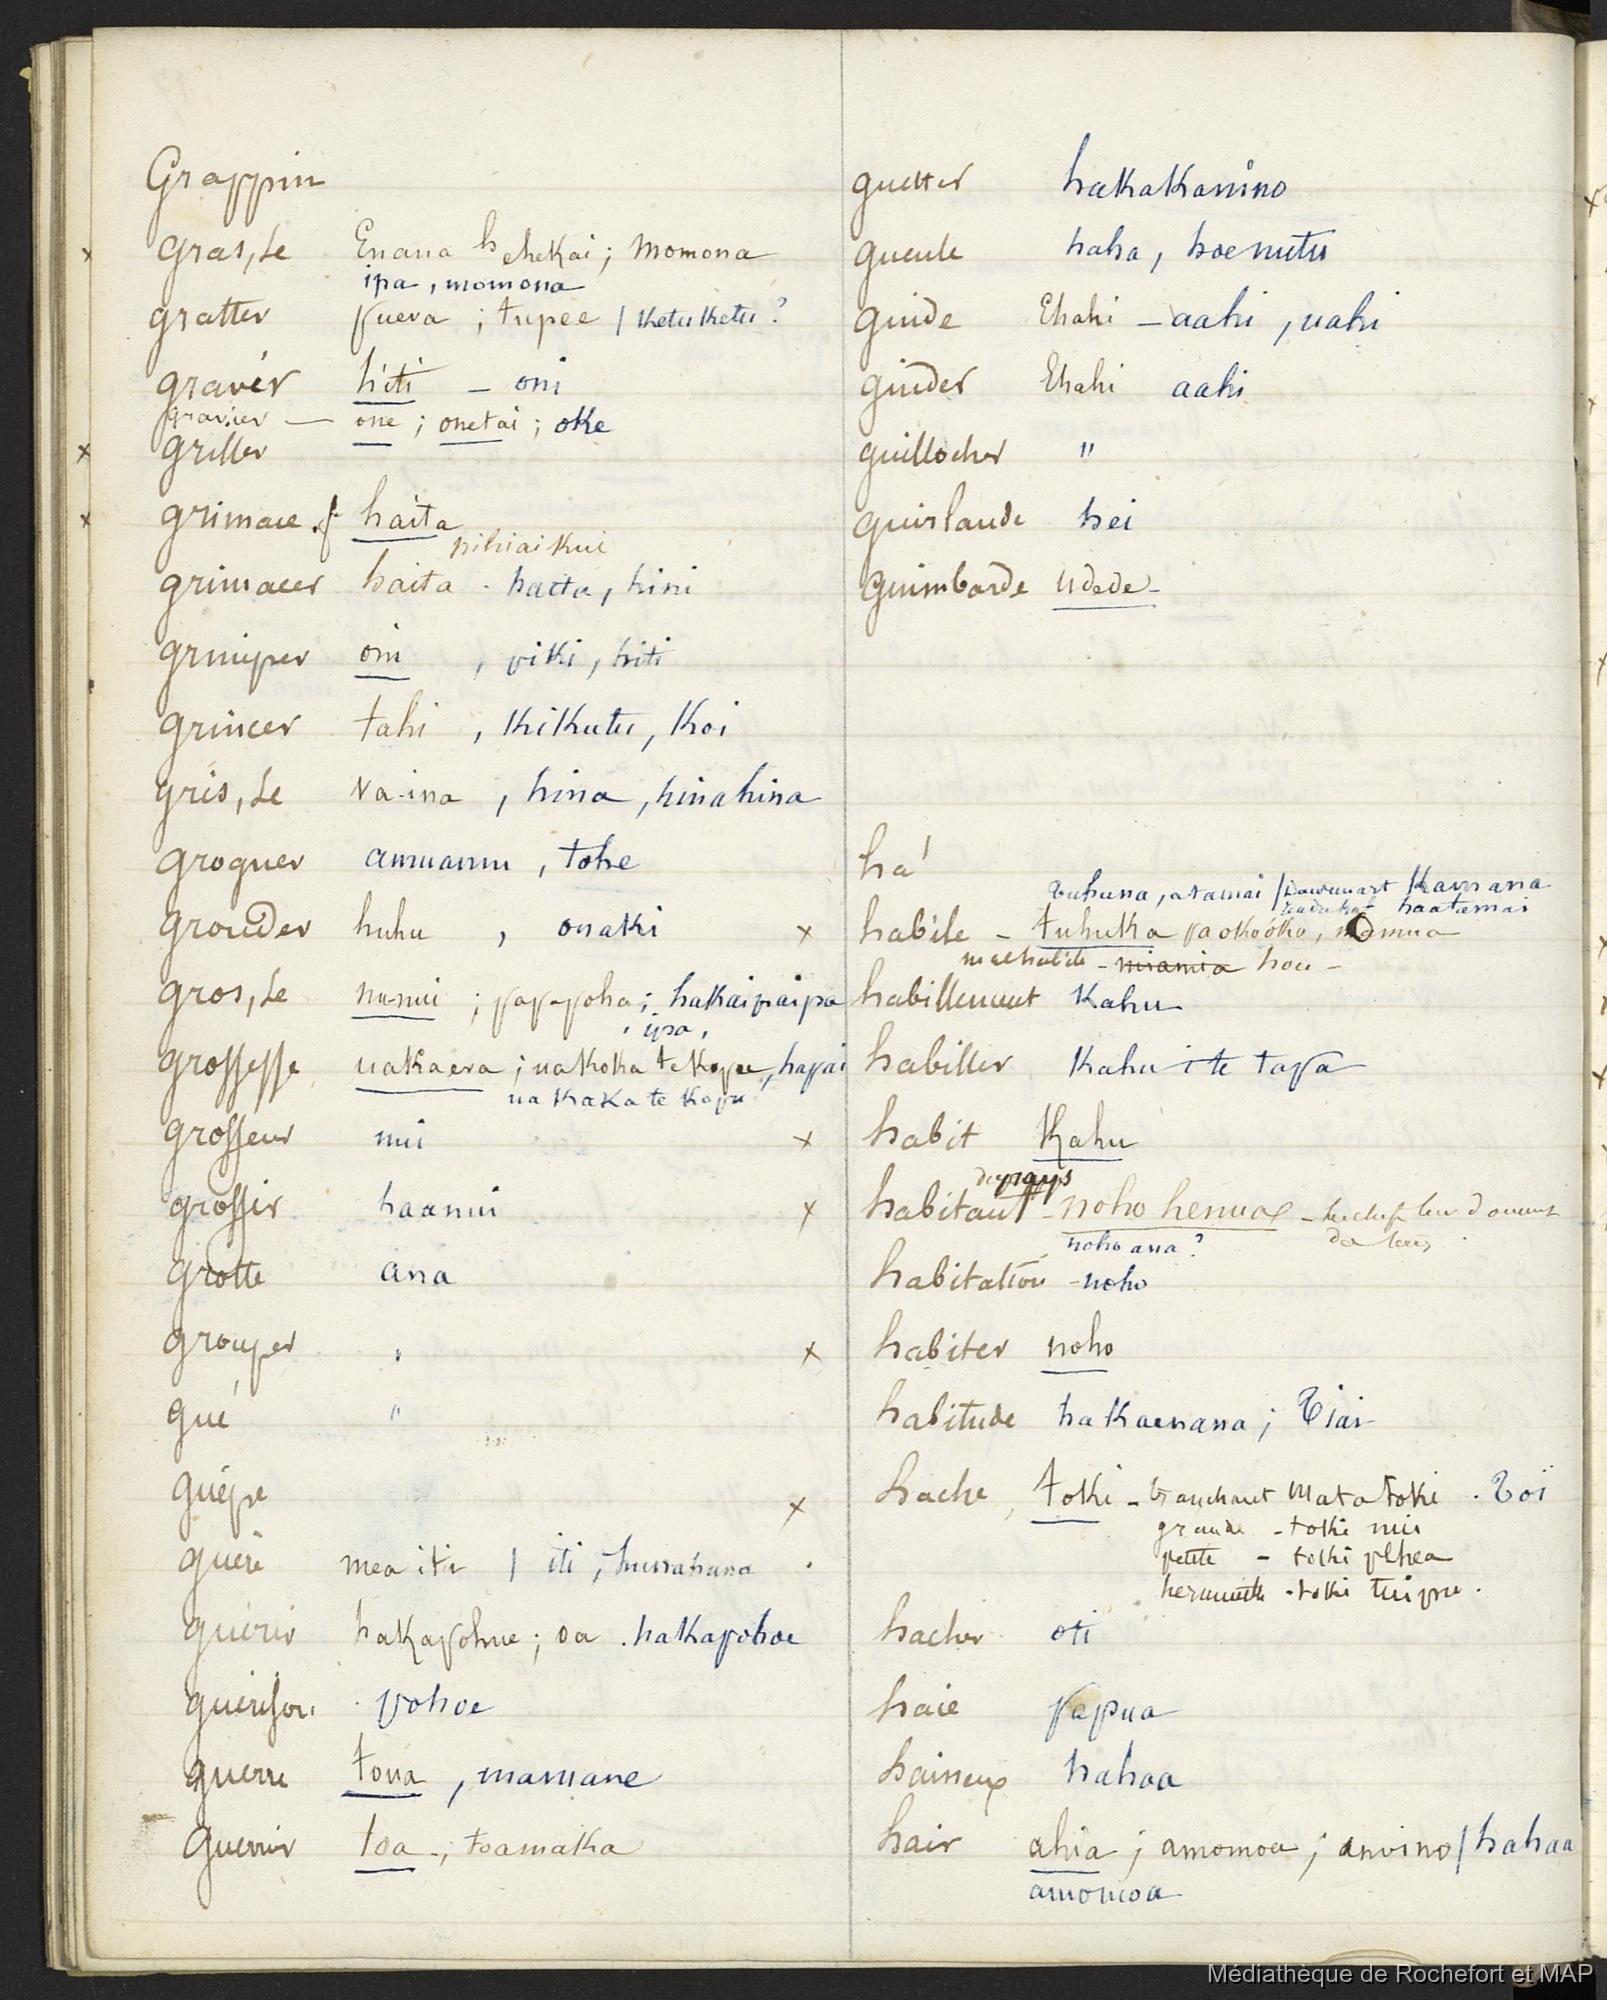 Grappin
× gras, se Enana hehekai; momona
ipa, momona
gratter puera; tupee / Ketuketu?
gravir hiti - oni
gravier — one; onetai; oke
× griller
× grimace f haita
nihiaikui
grimacer haita - haita, hini
grimper oni, piki, hiti
grincer tahi, Kikutu, Koi
gris, se va-ina, hina, hinahina
grogner amuamu, tohe
gronder huhu, onaki
gros, se nunui; papapoha; hakaipaipa
, ipa,
grossesse uakaera; uakoka te Kopu, hapai
ua Kaka te Kopu
grosseur nui
grossir haanui
grotte ana
grouper "
gué "
guépe
guère mea iti / iti, hunahuna
guérir hakapohue; oa. hakapohoe
guérison. pohoe
guerre toua, maniane
Guerrir toa -; toamaka
guetter hakakanino
gueule haha, hoe nutu
guide Ehahi - aahi, uahi
guider Ehahi aahi
guillocher "
guirlande hei
Guimbarde udede -
há
Tuhuna, atamai / Kamana
haatamai
× habile - tuhuka paokooko, mamua
malhabile - miamia hou -
habillement Kahu
habiller Kahu i te tapa
× habit Kahu
du pays
× habitant - noho henua -
noho ana?
habitation - noho
× habiter noho
habitude hakaenana; Tiai
× hache, toki - tranchant mata toki. Toï
grande - toki nui
petite - toki pehea
herminette - toki tuipu.
hacher oti
haie papua
haineux hahaa
hair ahia; amomoa; anoino / hahaa
amomoa
Médiathèque de Rochefort et MAP